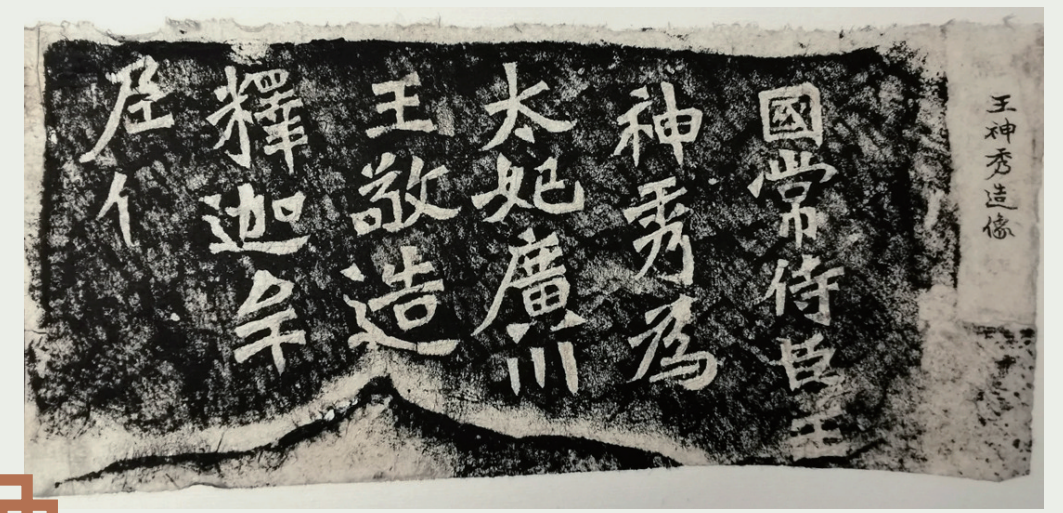 王神秀造像
國常侍臣王
神秀為
太妃廣川
王敬造
釋迦牟
尼仏